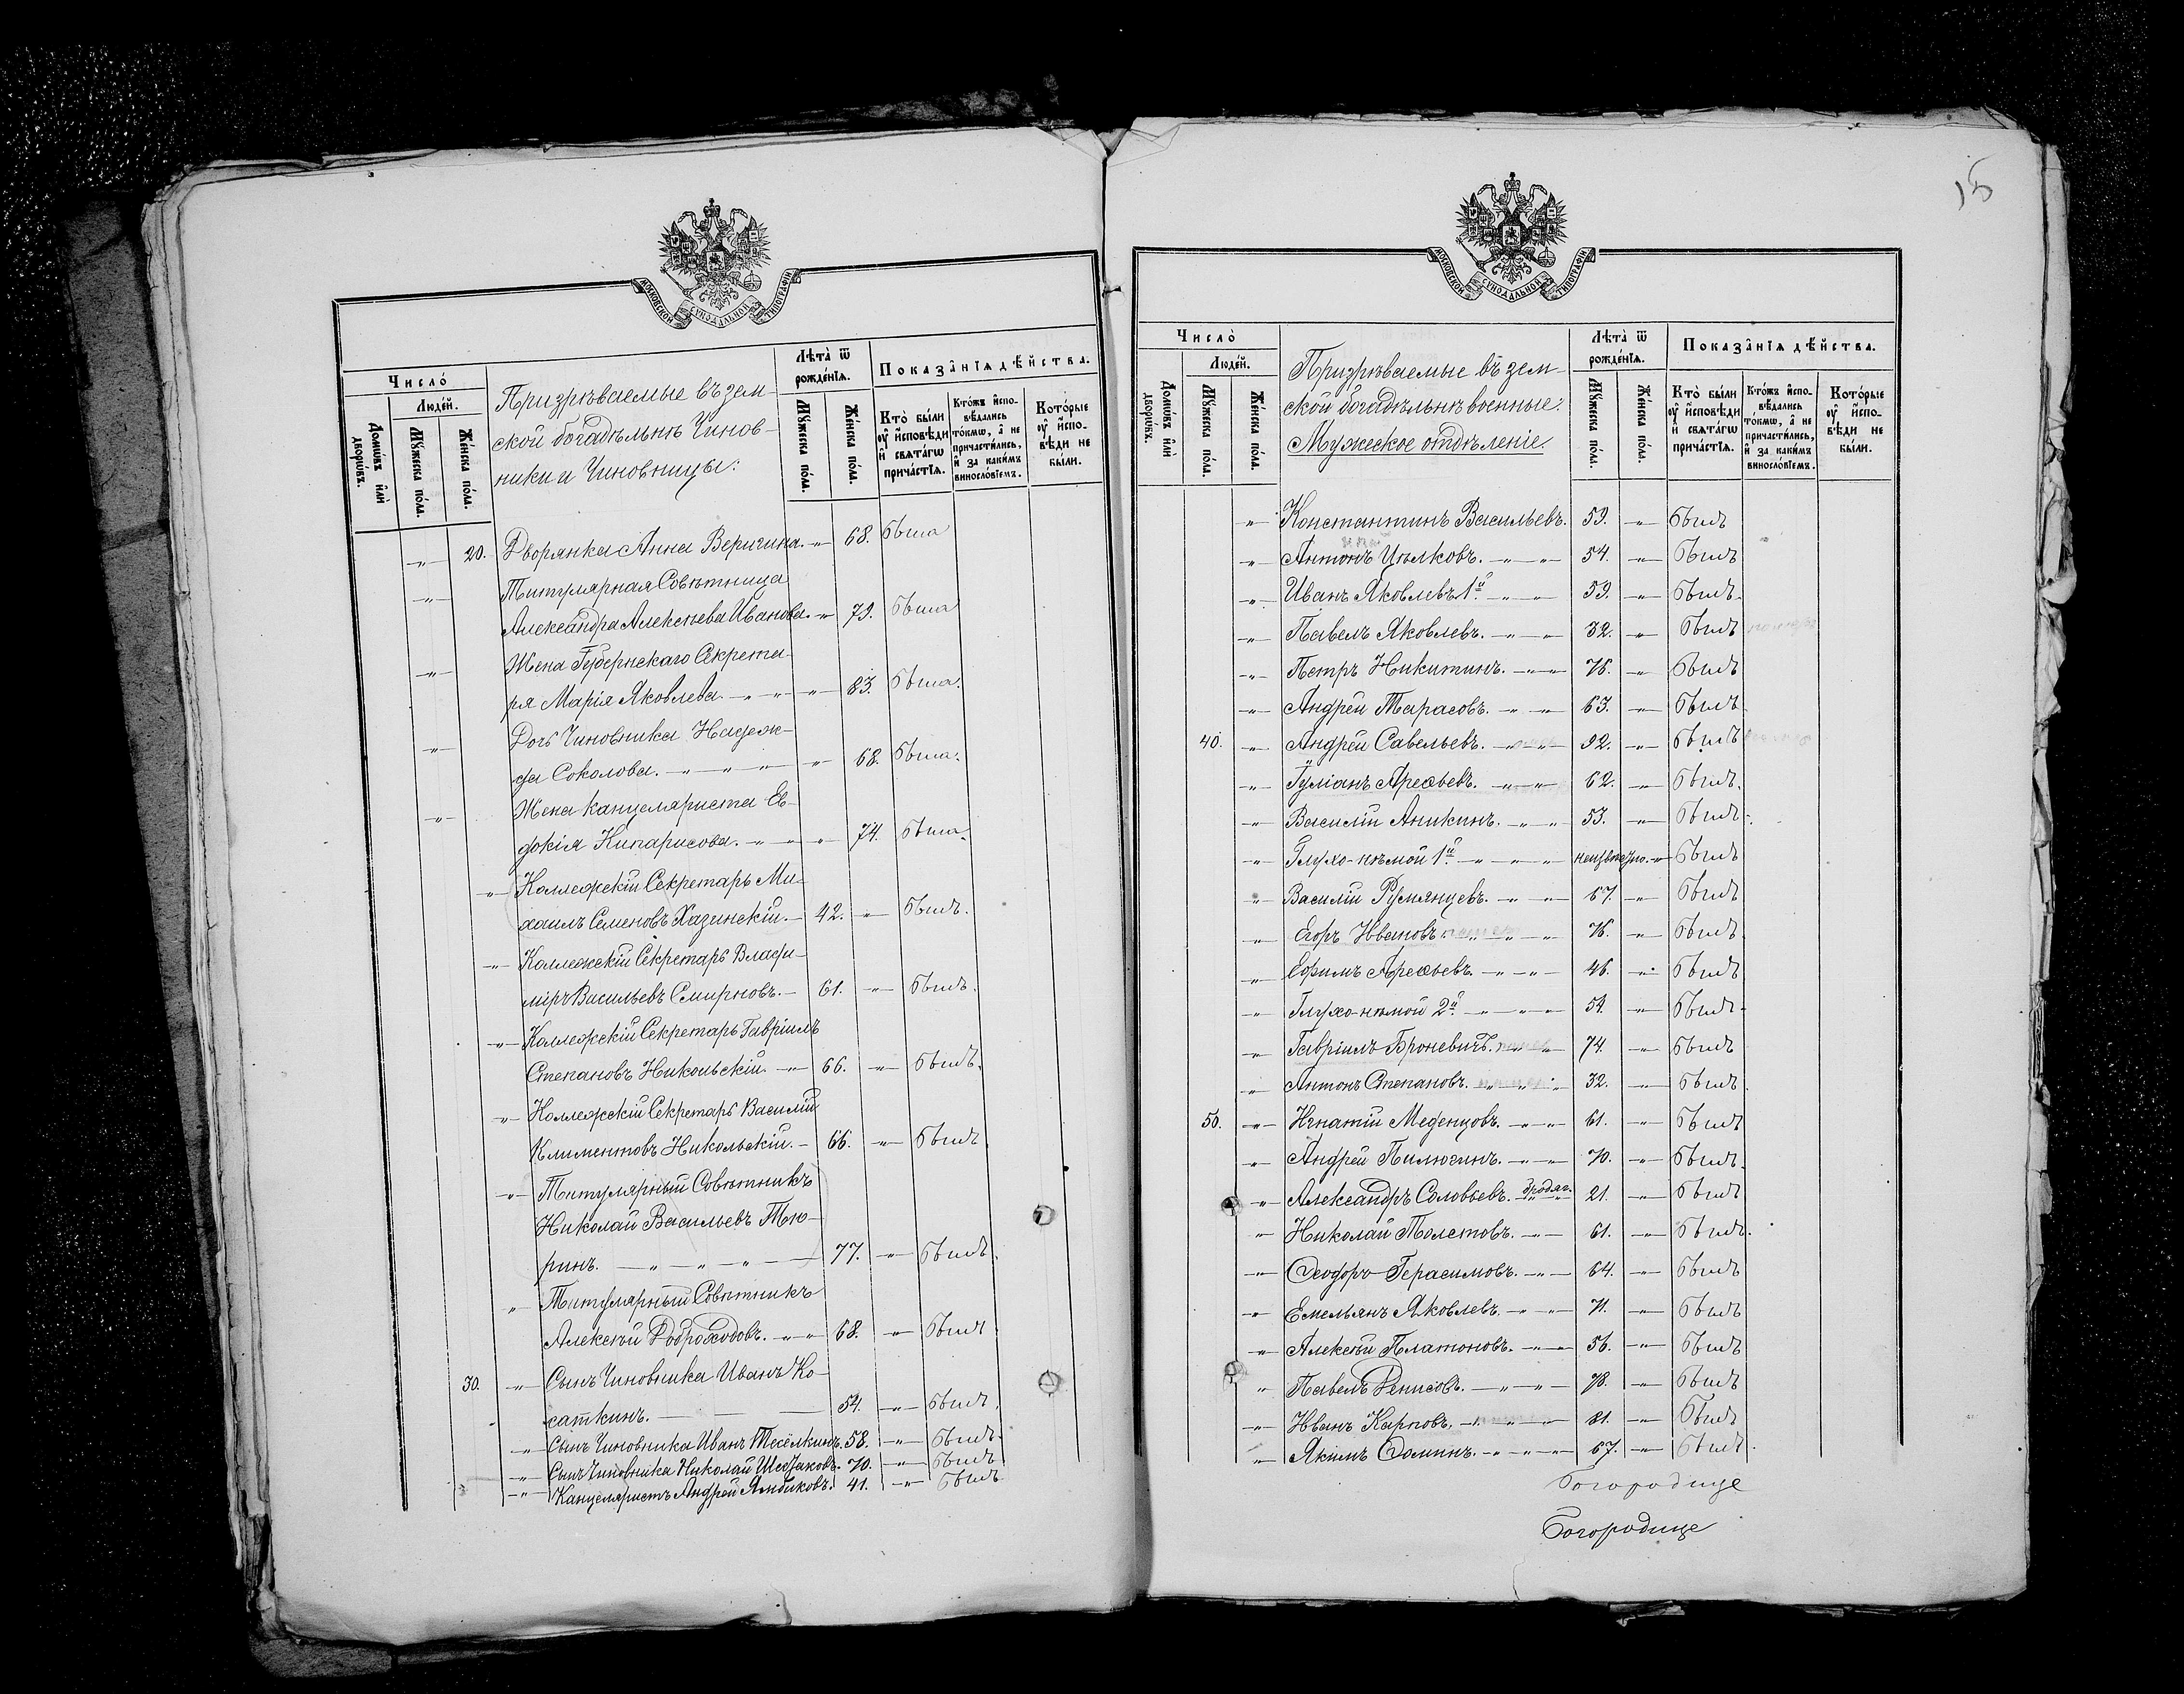 15
МОСКОВСКОЙ СУНОДАЛЬНОЙ ТИПОГРАФІИ
Число̀
Люде́й.
Домѡ́въ и҆лѝ дворѡ́въ.
Мꙋ́жеска по́ла.
Же́нска по́ла.
Призрѣваемые въ зем-
ской богадѣльнѣ Чинов-
ники и Чиновницы:
Лѣта̀ ѿ рожде́нїѧ.
Мꙋ́жеска по́ла.
Же́нска по́ла.
Показа̑нїѧ дѣ́йства.
Кто̀ бы́ли ᲂу҆ и҆сповѣ́ди и҆ свѧта́гѡ прича́стїѧ.
Кто́жъ и҆спо-вѣ́дались то́кмѡ, а҆ не причасти́лись, и҆ за каки́мъ виносло́вїемъ.
Кото́рые ᲂу҆ и҆спо-вѣ́ди не бы́ли.
-"- 20. Дворянка Анна Веригина. -"- 68. была
-"- Титулярная Совѣтница
Александра Алексѣева Иванова. -"- 79. была
-"- Жена Губернскаго Секрета-
ря Марія Яковлева. -"- -"- -"- 83. была.
-"- Дочь Чиновника Надеж-
да Соколова. -"- -"- -"- -"- 68. была.
-"- Жена канцеляриста Ев-
докія Кипарисова. -"- -"- -"- 74. была.
-"- Коллежскій Секретарь Ми-
хаилъ Семеновъ Хазинскій. - 42. -"- былъ.
-"- Коллежскій Секретарь Влади-
міръ Васильевъ Смирновъ. - 61. -"- былъ.
-"- Коллежскій Секретарь Гавріилъ
Степановъ Никольскій. -"- 66. -"- былъ.
-"- Коллежскій Секретарь Василій
Климентовъ Никольскій. - 66. -"- былъ.
-"- Титулярный Совѣтникъ
Николай Васильевъ Тю-
ринъ. -"- -"- -"- 77. -"- былъ.
" Титулярный Совѣтникъ
Алексѣй Доброходовъ. -"- " 68. -"- былъ
30. -"- Сынъ Чиновника Иванъ Ко-
саткинъ. - - 54. -"- былъ.
-"- Сынъ Чиновника Иванъ Тесёлкинъ. 58. -"- былъ.
-"- Сынъ Чиновника Николай 70. -"- былъ
-"- Канцеляристъ Андрей Ямбиковъ. 41. -"- былъ
МОСКОВСКОЙ СУНОДАЛЬНОЙ ТИПОГРАФІИ
Число̀
Люде́й.
Домѡ́въ и҆лѝ дворѡ́въ.
Мꙋ́жеска по́ла.
Же́нска по́ла.
Призрѣваемые въ зем-
ской богадѣльнѣ военные:
Мужеское отдѣленіе.
Лѣта̀ ѿ рожде́нїѧ.
Мꙋ́жеска по́ла.
Же́нска по́ла.
Показа̑нїѧ дѣ́йства.
Кто̀ бы́ли ᲂу҆ и҆сповѣ́ди и҆ свѧта́гѡ прича́стїѧ.
Кто́жъ и҆спо-вѣ́дались то́кмѡ, а҆ не причасти́лись, и҆ за каки́мъ виносло́вїемъ.
Кото́рые ᲂу҆ и҆спо-вѣ́ди не бы́ли.
-"- Константинъ Васильевъ. 59. -"- былъ
-"- Антонъ Цѣлковъ. -"- -"- 54. -"- былъ
-"- Иванъ Яковлевъ 1й. -"- -"- 59. -"- былъ.
-"- Павелъ Яковлевъ. -"- -"- 32. -"- былъ
-"- Петръ Никитинъ. -"- -"- 76. -"- былъ
-"- Андрей Тарасовъ. -"- -"- 63. -"- былъ
40. -"- Андрей Савельевъ. -"- -"- 92. -"- былъ
-"- Гуліанъ Арефьевъ. -"- -"- 62. -"- былъ.
-"- Василій Аникинъ. -"- -"- 53. -"- былъ.
-"- Глухо-нѣмой 1й. -"- -"- -"- неизвѣстно. -"- былъ
-"- Василій Румянцевъ. -"- -"- 67. -"- былъ
-"- Егоръ Ивановъ. -"- -"- 76. -"- былъ.
-"- Ефимъ Арефьевъ. -"- -"- 46. -"- былъ
-"- Глухо-нѣмой 2й. -"- -"- -"- 54. -"- былъ.
-"- Гавріилъ Броневичъ. -"- -"- 74. -"- былъ
-"- Антонъ Степановъ. " " " 32. -"- былъ.
50. -"- Игнатій Меденцовъ. -"- -"- 61. -"- былъ
-"- Андрей Пилюгинъ. -"- -"- 70. -"- былъ.
-"- Александръ Соловьевъ. 21. -"- былъ
-"- Николай Толстовъ. -"- 61. -"- былъ.
-"- Ѳеодоръ Герасимовъ. -"- 64. -"- былъ
-"- Емельянъ Яковлевъ. -"- -"- 71. -"- былъ
-"- Алексѣй Платоновъ. -"- -"- 56. -"- былъ
" Павелъ Денисовъ. -"- -"- 78. -"- былъ
-"- Иванъ Карповъ. -"- -"- 81. -"- былъ
-"- Якимъ Ѳоминъ. -"- -"- -"- 67. -"- былъ.
Богородице
Богородице